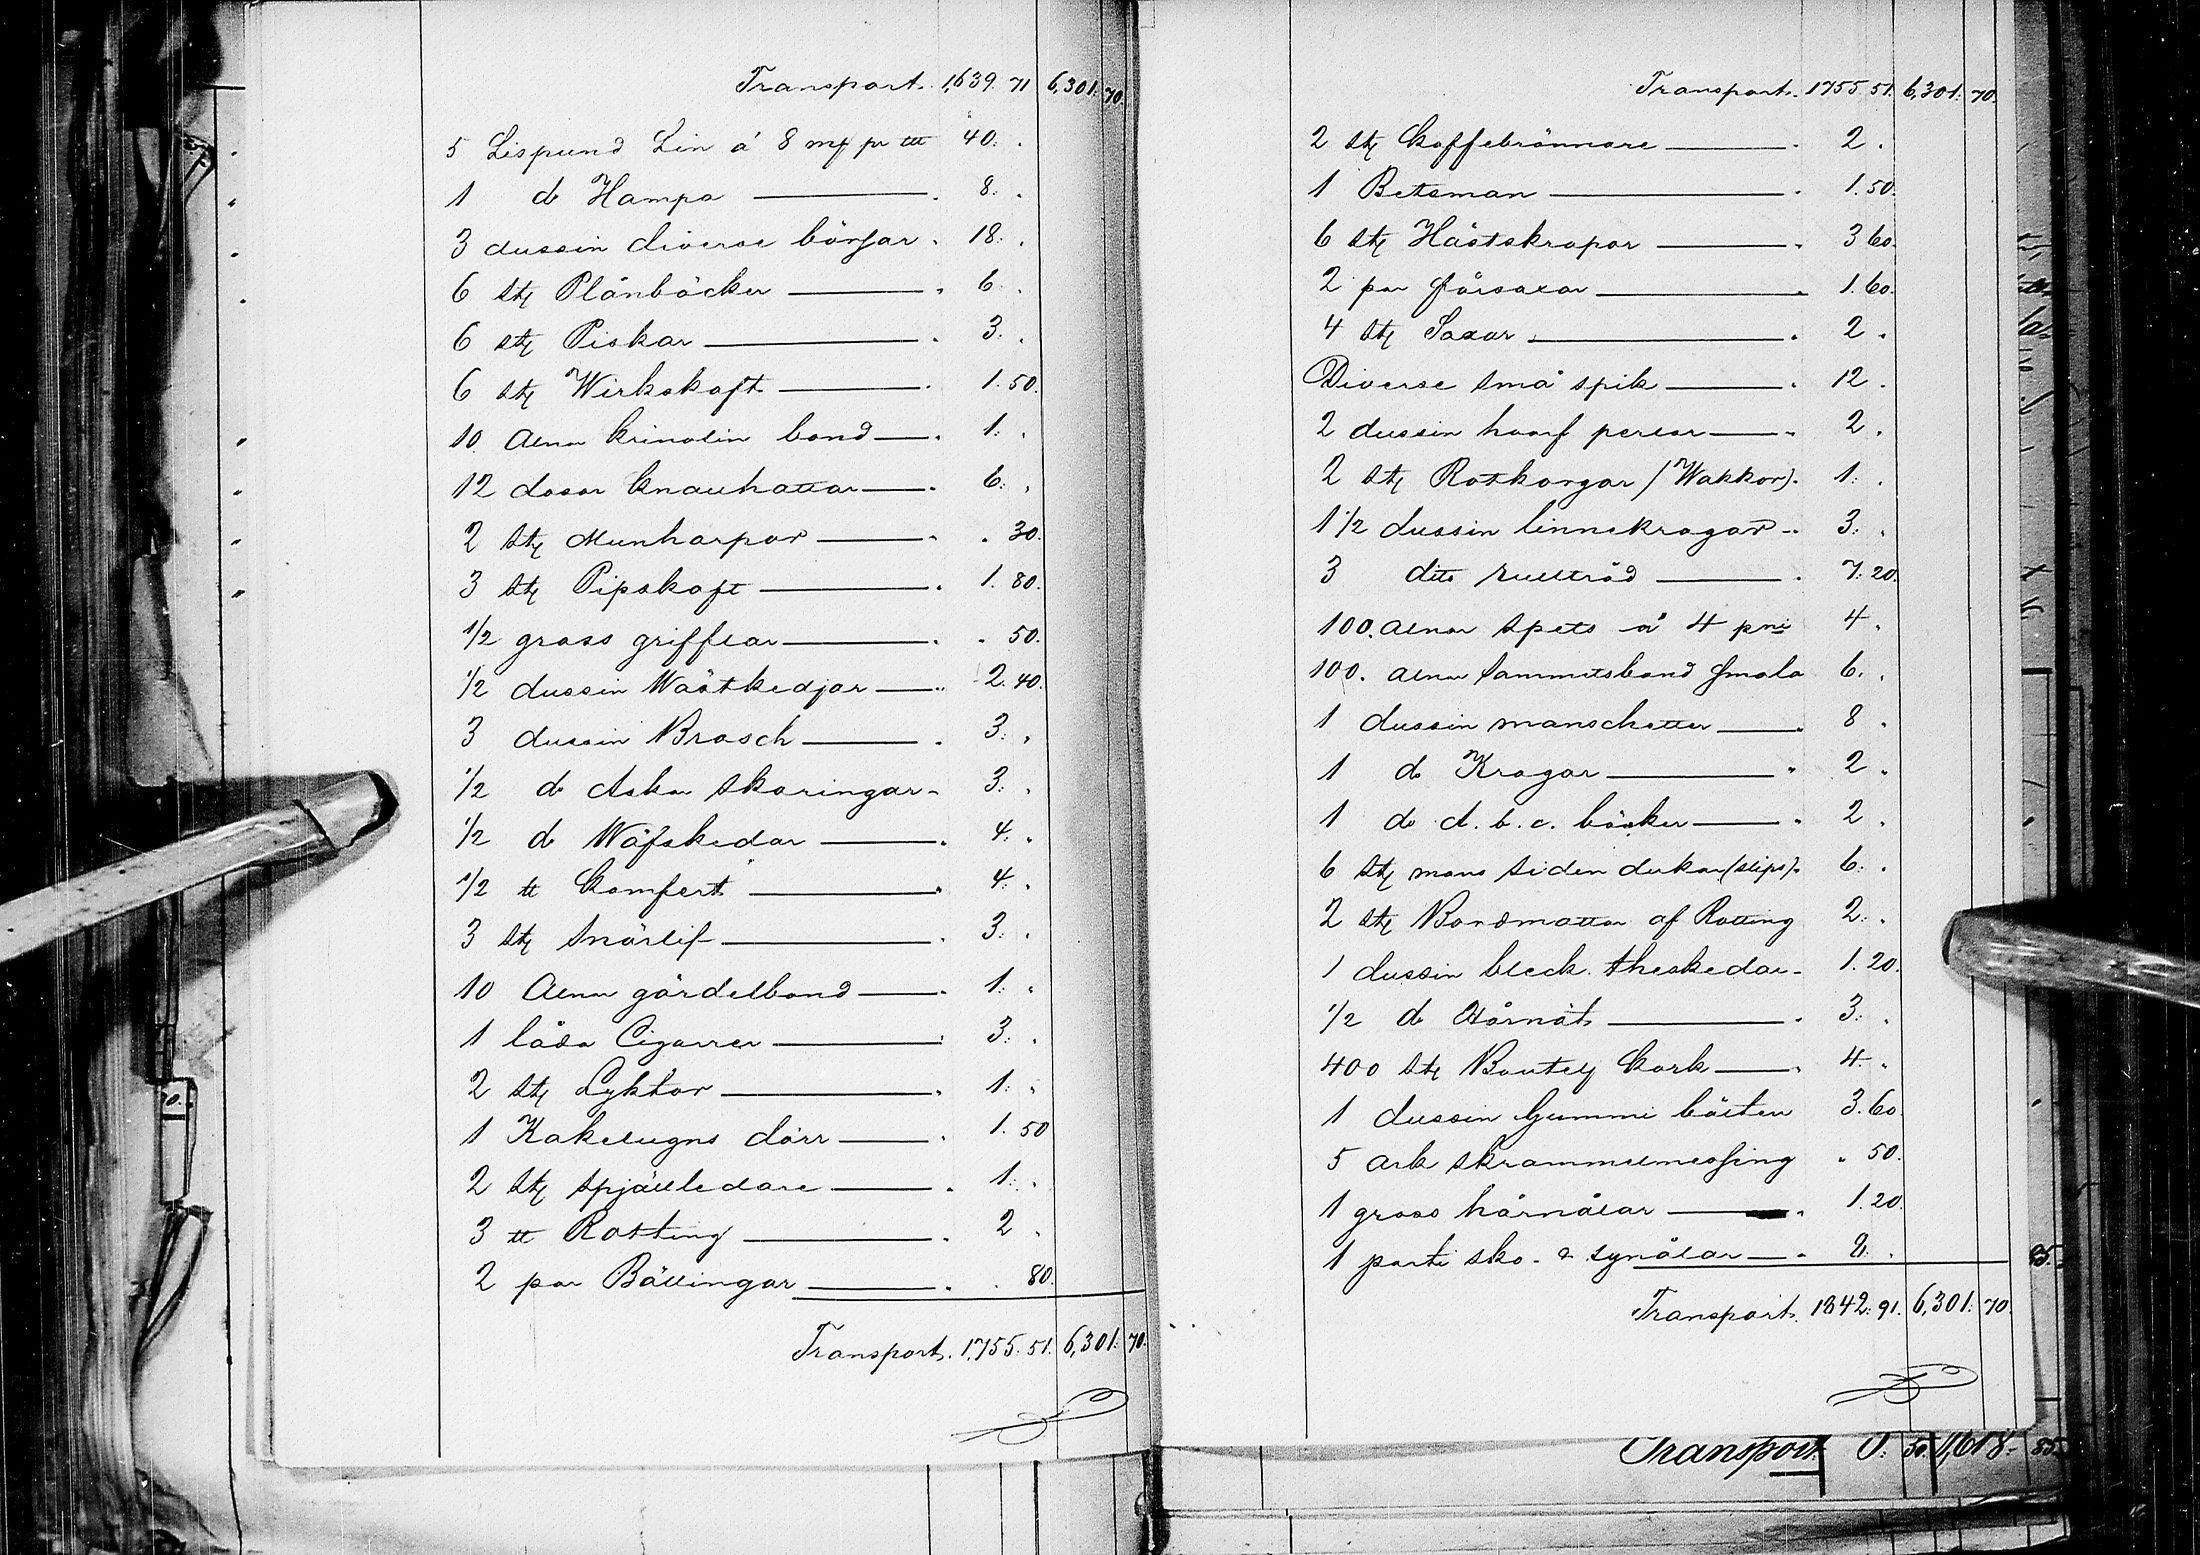 Transport. 1,639. 71 6,301. 70.
5 Lispund Lin á 8 mk pr ttt 40. .
1 do Hampa 8. .
3 dussin diverse börsar 18. .
6 stk Plånböcker 6 .
6 stk Piskar 3. .
6 stk Wirkskaft 1.50.
10. Alnar krinolin band 1. .
12 dosor knallhattar 6. .
2 stk Munharpor . 30.
3 stk Pipskaft 1. 80.
1/2 gross grifflar . 50.
1/2 dussin Wästkedjor 2. 40.
3 dussin Brosch 3. .
1/2 do Aska skoringar 3. .
1/2 do Wäfskedar 4. .
1/2 tt Komfert 4. .
3 stk Snörlif 3. .
10 Alnar gördelband 1. .
1 låda Cigarrer 3. .
2 stk Lyktor 1. .
1 Kakelugns dörr 1. 50
2 stk spjälledare 1. .
3 tt Rotting 2 .
2 par Bällingar . 80.
Transport. 1,755. 51. 6,301. 70.
Transport. 1755 51. 6,301. 70.
2 stk Kaffebrännare 2 .
1 Betsman 1.50.
6 stk Hästskrapor 3 60.
2 par fårsaxar 1. 60.
4 stk Saxar 2 .
Diverse små spik 12 .
2 dussin perlor 2 .
2 stk Rotkorgar (Wakkor). 1. .
1 1/2 dussin linnekragar 3. .
3 dito rulltråd 7. 20.
100. alnar spets á 4 pni 4 .
100. alnar Sammetsband smala 6. .
1 dussin manschetter 8 .
1 do Kragar 2 .
1 do A. b. c. böcker 2 .
6 stk mans siden dukar (slips). 6. .
2 stk Bordmattor af Rotting 2. .
1 dussin bleck theskedar 1. 20.
1/2 do Hårnät 3. .
400 stk Boutelj Kork 4. .
1 dussin Gummi bälten 3. 60.
5 ark skrammelmessing . 50.
1 gross hårnålar 1. 20.
1 parti sko- & synålar 2. .
Transport. 1842. 91. 6,301. 70.
Transport 1,618. 85